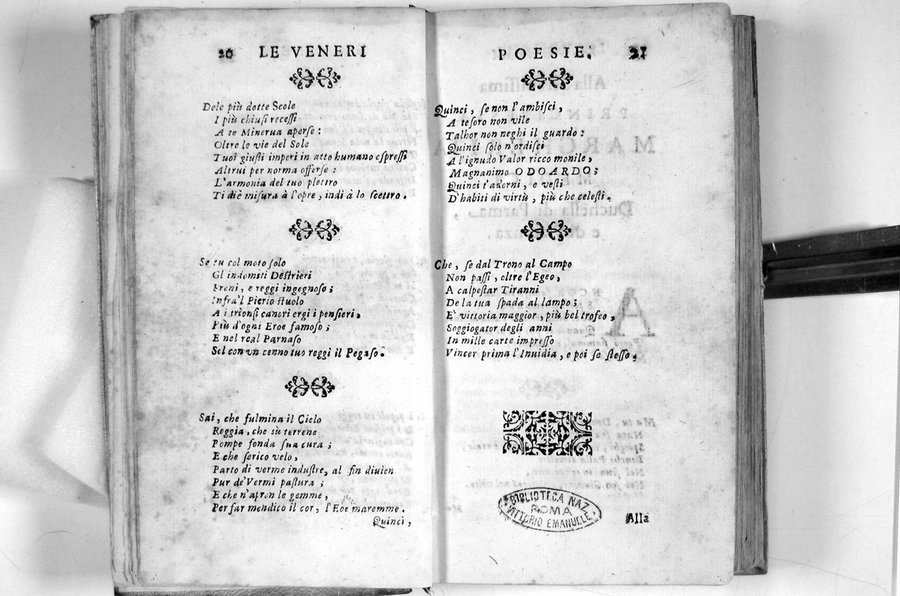 20 LE VENERI
Dele più dotte Scole
I più chiusi recessi
A te Minerua aperse:
Oltre le vie del Sole
Tuoi giusti imperi in atto humano espressi
Altrui per norma offerse:
L'armonia del tuo plettro
Ti diè misura à l'opre, indi à lo scettro.
Se tu col moto solo
Gl indomiti Destrieri
Freni, e reggi ingegnoso;
Infra'l Pierio stuolo
A i trionfi canori ergi i pensieri.
Più d'ogni Eroe famoso;
E nel real Parnaso
Sol con vn cenno tuo reggi il Pegaso.
Sai, che fulmina il Cielo
Reggia, che sù terrene
Pompe fonda sua cura;
E che serico velo,
Parto di verme industre, al fin diuien
Pur de' Vermi pastura;
E che n'apron le gemme,
Per far mendico il cor, l'Eoe maremme.
Quinci,
POESIE. 21
Quinci, se non l'ambisci,
A tesoro non vile
Talhor non neghi il guardo:
Quinci solo n'ordisci
A l'ignudo Valor ricco monile,
Magnanimo ODOARDO;
Quinci t'adorni, e vesti
D'habiti di virtù, più che celesti.
Che, se dal Trono al Campo
Non passi, oltre l'Egeo,
A calpestar Tiranni
De la tua spada al lampo;
E' vittoria maggior, più bel trofeo,
Soggiogator degli anni
In mille carte impresso
Vincer prima l'Inuidia, e poi se stesso.
BIBLIOTECA NAZ.
ROMA
VITTORIO EMANUELE
Alla